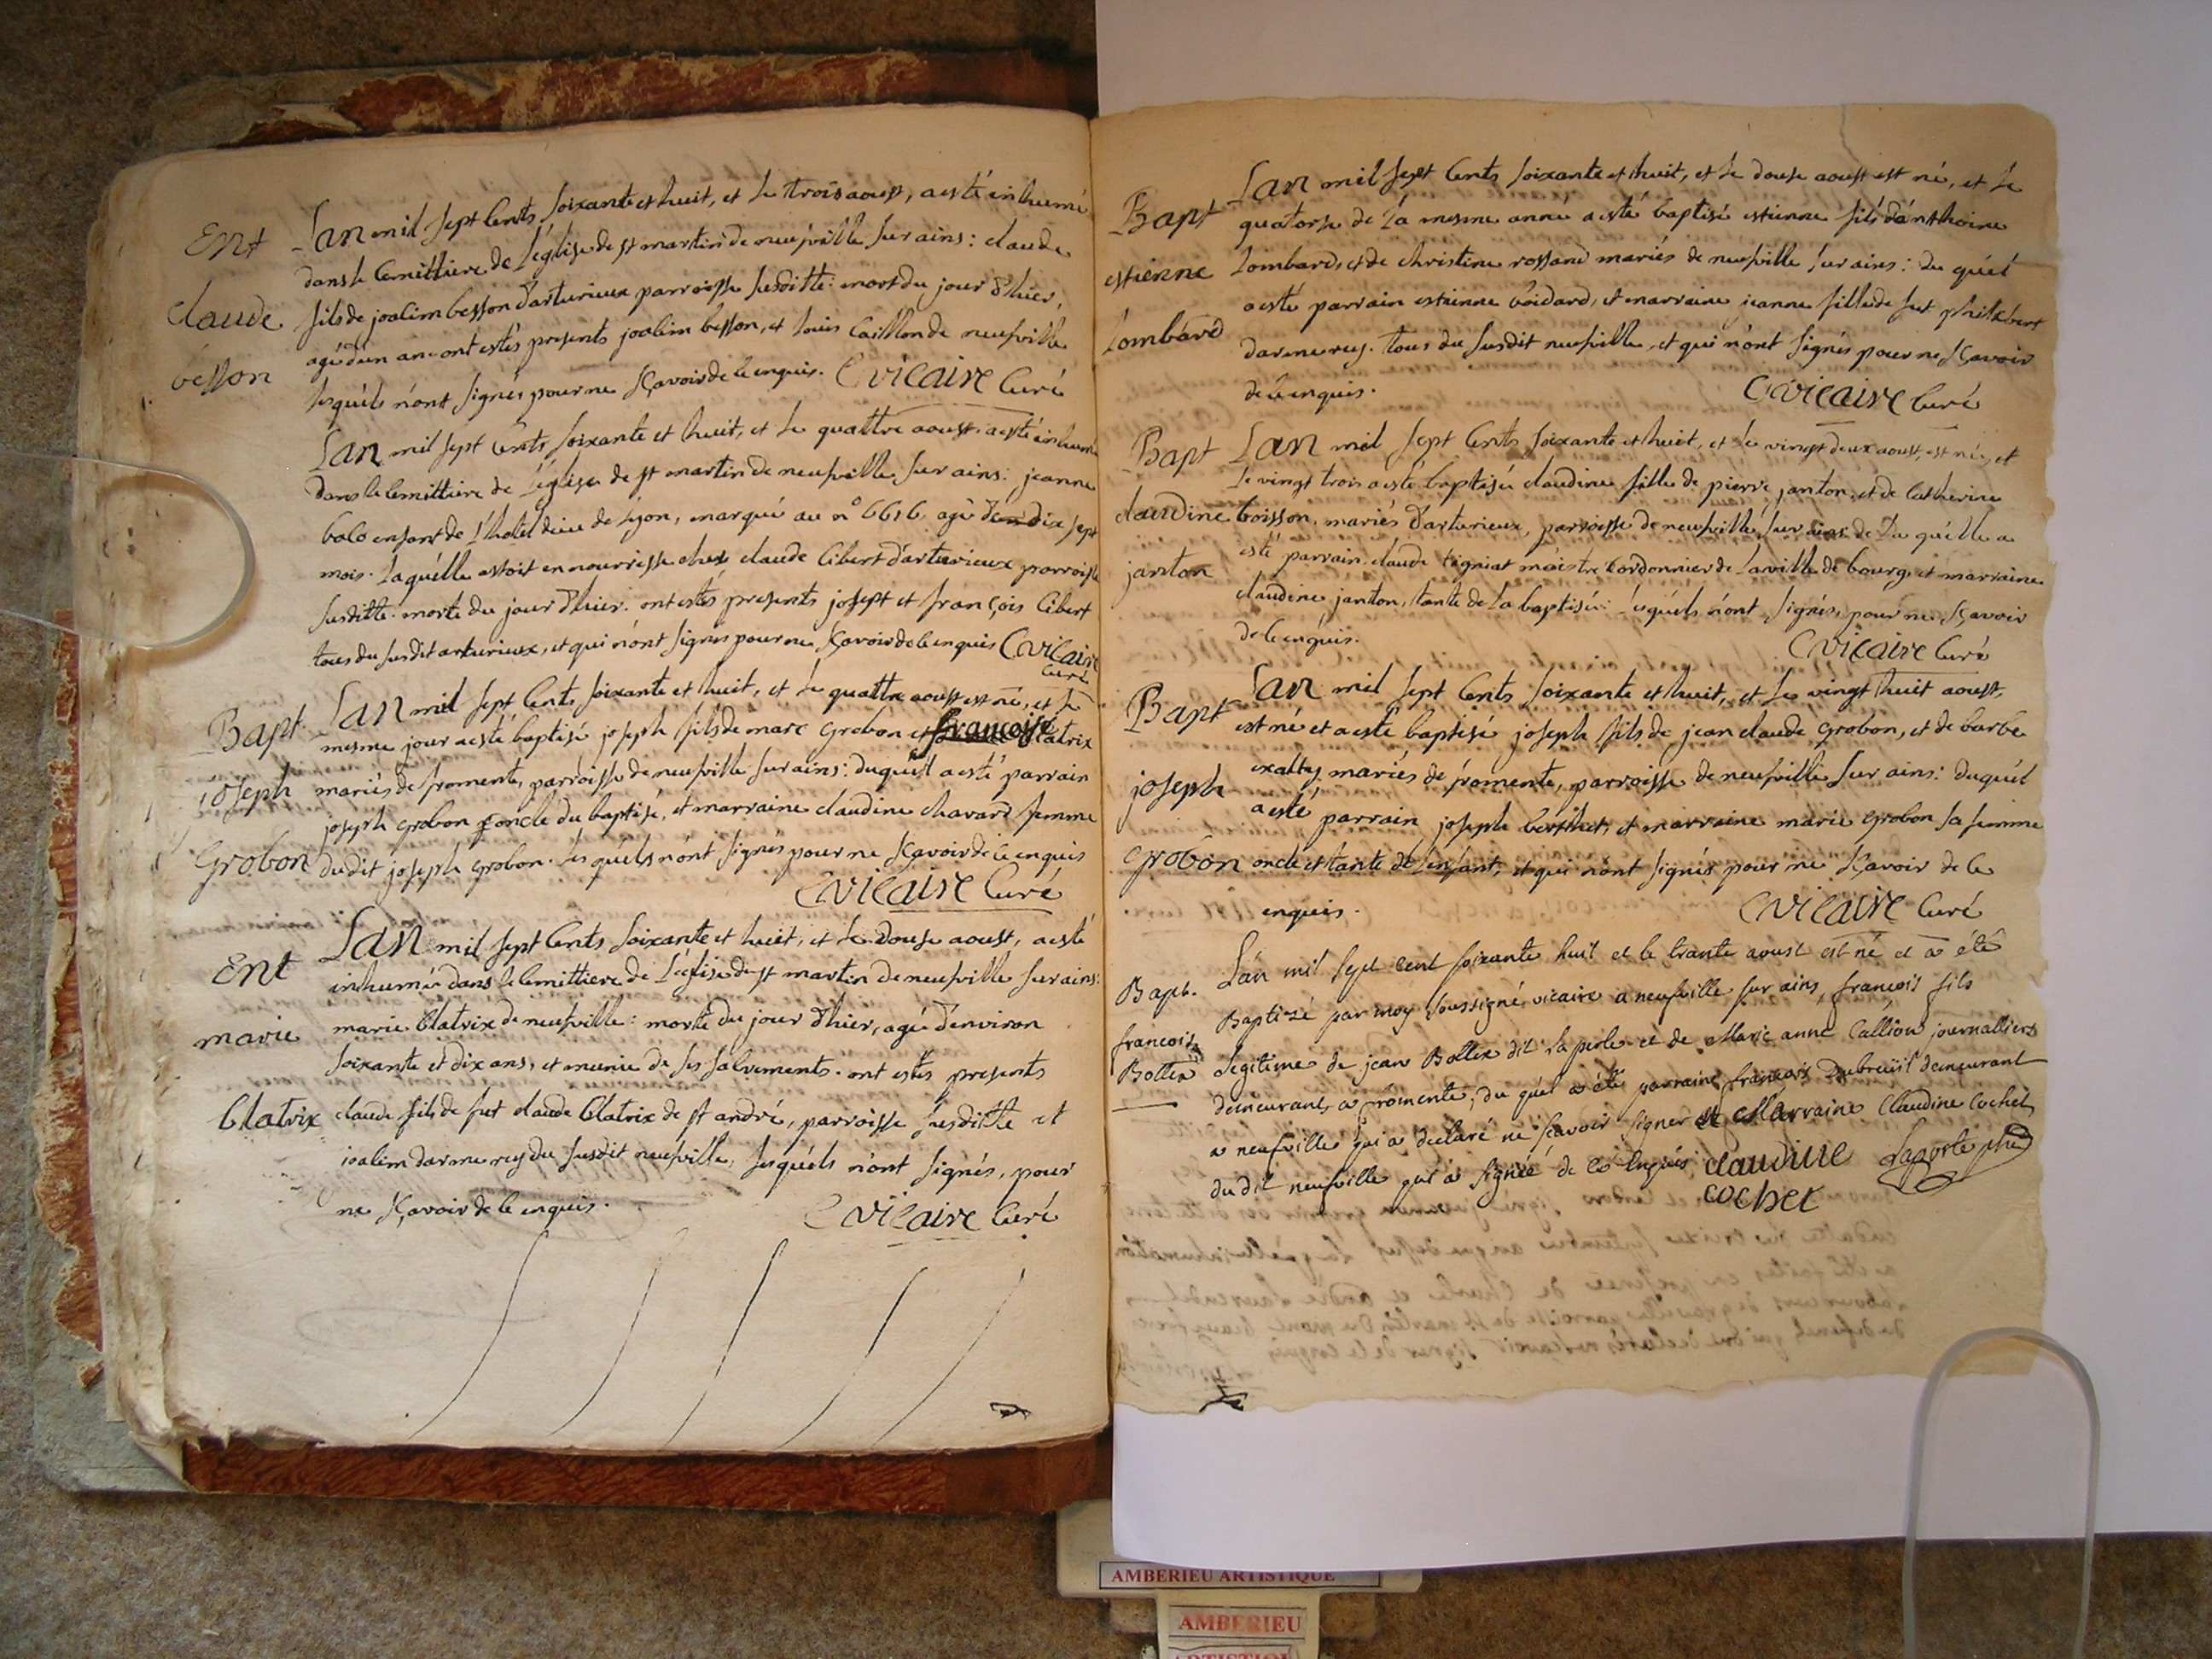 Ent
claude
besson
Lan mil sept cents soixante et huit, et le trois aoust, a esté inhumé
dans le cemittiere de l'église de st martin de neufville sur ains: claude
fils de joalim besson d'arturieux parroisse susditte: mort du jour d'hier,
agé d'un an: ont estés presents joalim besson, et louis Caillon de neufville
lesquéls n'ont signés pour ne sçavoir de ce enquis. C vicaire Curé
Lan mil sept cents soixante et huit, et le quattre aoust a esté inhumé
dans le cemittiere de l'église de st martin de neufville sur ains: jeanne
bolo enfant de l'hotel dieu de lyon, marqué au n° 6616 agé dix sept
mois. laquélle estoit en nourrisse chés claude Cibert d'arturieux parroisse
susditte. morte du jour d'hier. ont estés presents josept et françois Cibert
tous du susdit arturieux, et qui n'ont signés pour ne sçavoir de ce enquis C vicaire
Curé
Bapt
joseph
Grobon
Lan mil sept cents soixante et huit, et le quattre aoust est né, et le
mesme jour a esté baptisé joseph fils de marc Grobon et françoise Clatrix
mariés de fromente, parroisse de neufville sur ains: duquél a esté parrain
joseph Grobon oncle du baptisé, et marraine claudine chavard femme
dudit joseph grobon. lesquéls n'ont signés pour ne sçavoir de ce enquis
C vicaire Curé
Ent
marie
Clatrix
Lan mil sept cents soixante et huit, et le douse aoust, a esté
inhumée dans le cemittiere de l'église de st martin de neufville sur ains:
marie Clatrix de neufville: morte du jour d'hier, agée d'environ
soixante et dix ans, et munie de ses sacrements. ont estés presents
claude fils de fut claude Clatrix de st andré, parroisse susditte et
joalim darmerey du susdit neufville, lesquéls n'ont signés, pour
ne sçavoir de ce enquis.
C vicaire Curé
Bapt
estienne
Lombard
Lan mil sept cents soixante et huit, et le douse aoust est né, et le
quatorse de la mesme anné a esté baptisé estienne fils d'anthoine
Lombard, et de christine rossand mariés de neufville sur ains: du quél
a esté parrain estienne boidard, et marraine jeanne fille de fut philibert
darmerey. tous du susdit neufville, et qui n'ont signés pour ne sçavoir
de ce enquis.
C vicaire Curé
Bapt
claudine
janton
Lan mil sept cents soixante et huit, et le vingt deux aoust, est née, et
le vingt trois a esté baptisée claudine fille de pierre janton, et de catherine
boisson, mariés d'arturieux, parroisse de neufville sur ains: de la quélle a
esté parrain claude tigniat maistre cordonnier de la ville de bourg, et marraine
claudine janton, tante de la baptisée: lesquéls n'ont signés, pour ne sçavoir
de ce enquis.
C vicaire Curé
Bapt
joseph
Grobon
Lan mil sept cents soixante et huit, et le vingt huit aoust,
est né et a esté baptisé joseph fils de jean claude Grobon, et de barbe
exaltty mariés de fromente, parroisse de neufville sur ains: duquél
a esté parrain joseph berthet, et marraine marie Grobon sa femme
oncle et tante de l'enfant, et qui n'ont signés pour ne sçavoir de ce
enquis.
C vicaire Curé
Bapt.
francois
Bottex
Lan mil sept cent soixante huit et le trante aoust est né et a été
Baptizé par moy soussigné vicaire a neufville sur ains, francois fils
Legitime de jean Bottex dit la perle et de Marie anne Callion journalliers
demeurant a fromente, du quel a été parrain francois Dubreüil demeurant
a neufville qui a declaré ne scavoir signer et Marraine Claudine Cochet
du dit neufville qui a signée de ce Enquis claudine Laporte ptre
cochet
AMBERIEU ARTISTIQUE
AMBERIEU
ARTISTIQUE